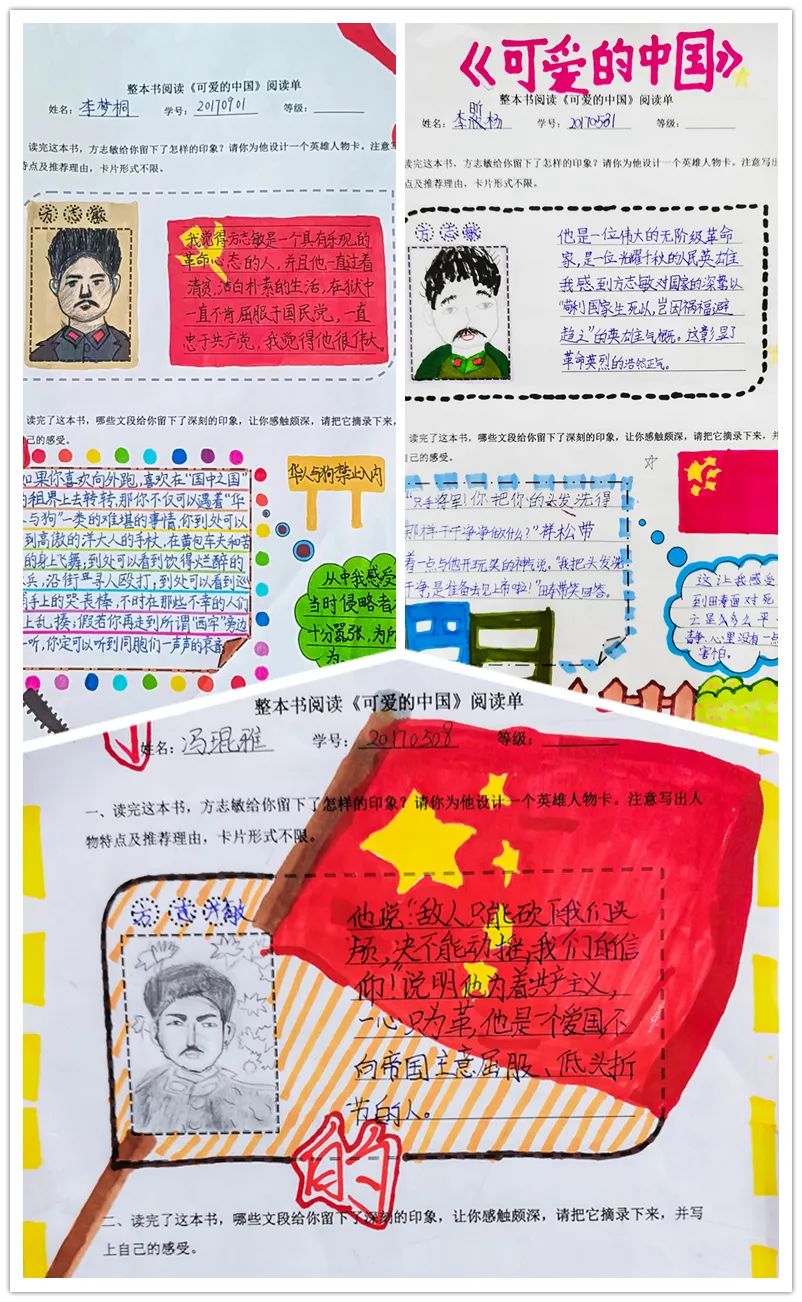 整本书阅读《可爱的中国》阅读单
姓名：李梦桐 学号：20170901 等级：
读完这本书，方志敏给你留下了怎样的印象？请你为他设计一个英雄人物卡。注意写
特点及推荐理由，卡片形式不限。
方志敏
我觉得方志敏是一个具有乐观的
革命心态的人，并且他一直过着
清贫，洁白朴素的生活，在狱中
一直不肯屈服于国民党，一直
忠于共产党，我觉得他很伟大。
读完了这本书，哪些文段给你留下了深刻的印象，让你感触颇深，请把它摘录下来，
己的感受。
如果你喜欢向外跑，喜欢在“国中之国”
的租界上去转转，那你不仅可以遇着“华
人与狗”一类的难堪的事情，你到处可以
到高傲的洋大人的手杖，在黄包车夫和苦
的身上飞舞，到处可以看到饮得烂醉的
水兵，沿街寻人殴打，到处可以看到巡
手上的哭丧棒，不时在那些不幸的人们
上乱揍，假若你再走到所谓“西牢”旁边
一听，你定可以听到同胞们一声声的哀音
华人与狗禁止入内
从中我感受
当时侵略者
十分嚣张，为所
为。
《可爱的中国》
整本书阅读《可爱的中国》阅读单
姓名：李 杨 学号：20170531 等级：
读完这本书，方志敏给你留下了怎样的印象？请你为他设计一个英雄人物卡。注意写出
点及推荐理由，卡片形式不限。
方志敏
他是一位伟大的无阶级革命
家，是一位光耀千秋的人民英雄
我感到方志敏对国家的深爱以
利国家生死以，岂因祸福避
趋之”的英雄主气概。这彰显了
革命英烈的浩然正气。
读完了这本书，哪些文段给你留下了深刻的印象，让你感触颇深，请把它摘录下来，并
己的感受。
“只手将军！你把你的头发洗得
那样干干净净做什么？”祥松带
着一点与他开玩笑的神气说。“我把头发洗
干净，是准备去见上帝啦！”田寿带笑回答。
这让我感受
到田寿面对死
亡是多么平
静，心里没有一点
害怕。
整本书阅读《可爱的中国》阅读单
姓名：冯琨雅 学号：20170508 等级：
一、读完这本书，方志敏给你留下了怎样的印象？请你为他设计一个英雄人物卡。注意写出人
物特点及推荐理由，卡片形式不限。
方志敏
他说：“敌人只能砍下我们头
颅，决不能动摇，我们的信
仰！”说明他为着共产主义，
一心只为革，他是一个爱国不
向帝国主意屈服、低头折
节的人。
的
二、读完了这本书，哪些文段给你留下了深刻的印象，让你感触颇深，请把它摘录下来，并写
上自己的感受。